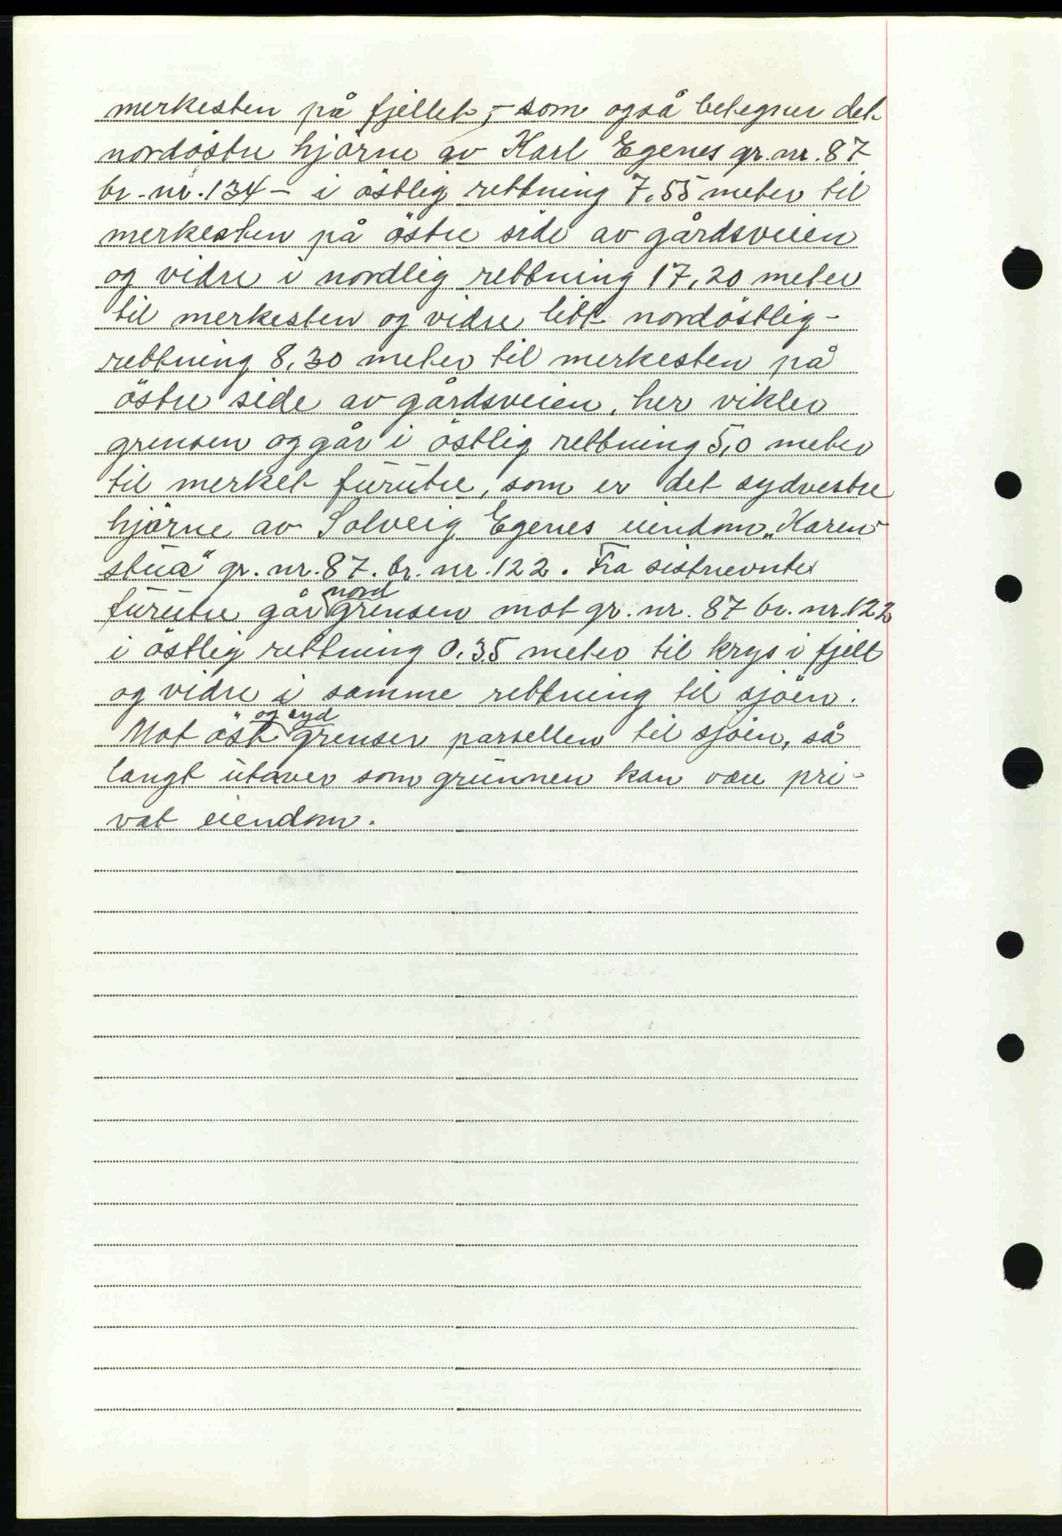 merkesten på fjellet, - som også betegner det
nordöstre hjörne av Karl Egenes gr. nr. 87
br. nr. 134 - i östlig rettning 7.55 meter til
merkesten på östre side av gårdsveien
og vidre i nordlig rettning 17,20 meter
til merkesten og vidre litt nordöstlig-
rettning 8,30 meter til merkesten på
östre side av gårdsveien, her vikler
grensen og går i östlig rettning 5,0 meter
til merket furutre, som er det sydvestre
hjörne av Solveig Egenes eiendom „Karen-
stua" gr. nr. 87. br. nr. 122. Fra sistnevnte
furutre går nordgrensen mot gr. nr. 87 br. nr. 122
i östlig rettning 0.35 meter til krys i fjell
og vidre i samme rettning til sjöen.
Mot öst og syd grenser parsellen til sjöen, så
langt utover som grunnen kan være pri-
vat eiendom.